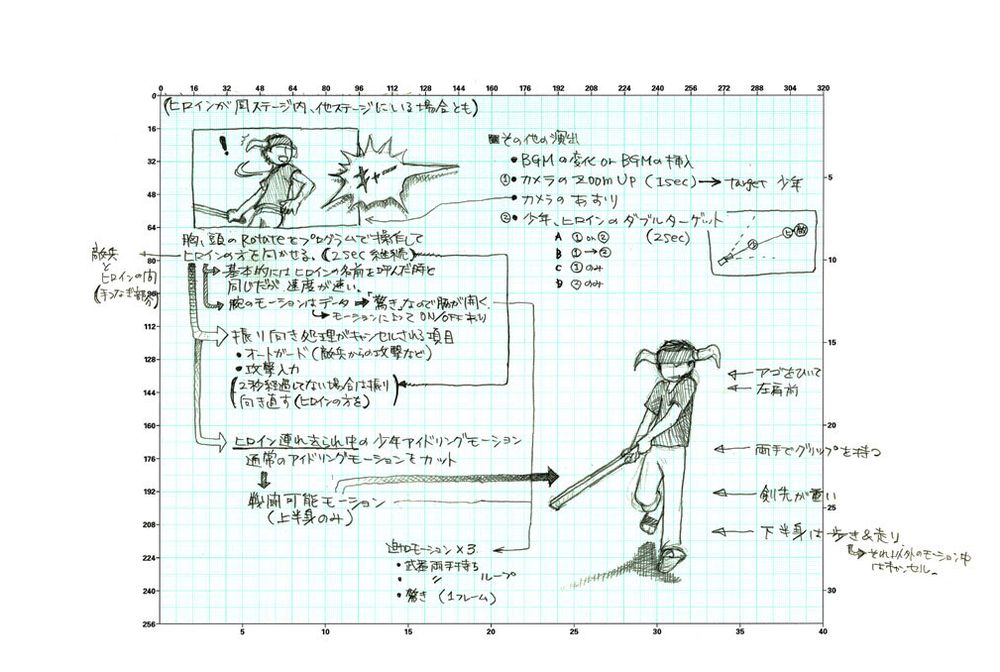 0 16 32 48 64 80 96 112 128 144 160 176 192 208 224 240 256 272 288 304 320
0
16
32
48
64
80
96
112
128
144
160
176
192
208
224
240
256
5
10
15
20
25
30
5 10 15 20 25 30 35 40
(ヒロインが同ステージ内、他ステージにいる場合とも)
!
キャー
胸、頭のRotateをプログラムで操作して
ヒロインの方を向かせる。(2sec継続)
敵兵
と
ヒロインの間
(手つなぎ部分)
基本的にはヒロインの名前を呼んだ時と
同じだが、速度が速い。
腕のモーションはデータ→「驚き」なので腕が開く。
モーションによってON/OFFあり
振り向き処理がキャンセルされる項目
・オートガード(敵兵からの攻撃など)
・攻撃入力
(2秒経過してない場合は振り
向き直す(ヒロインの方を)
ヒロイン連れ去られ中の少年アイドリングモーション
通常のアイドリングモーションをカット
戦闘可能モーション
(上半身のみ)
追加モーション×3.
・武器両手持ち
・ 〃 ループ
・驚き (1フレーム)
■その他の演出
・BGMの変化 or BGMの挿入
①・カメラのZoom UP (1sec) → target 少年
・カメラのあおり
②・少年、ヒロインのダブルターゲット
(2sec)
A ① or ②
B ①→②
C ①のみ
D ②のみ
少
ヒ
敵
アゴをひいて
左肩前
両手でグリップを持つ
剣先が重い
下半身は歩き&走り
それ以外のモーション中
はキャンセル。